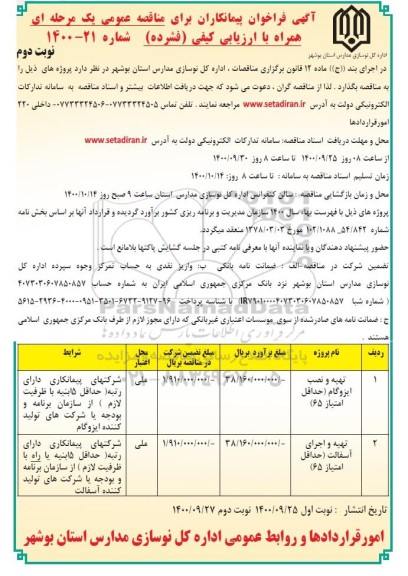 آگهی فراخوان پیمانکاران برای مناقصه عمومی یک مرحله ای
همراه با ارزیابی کیفی (فشرده) شماره ۲۱-۱۴۰۰
اداره کل نوسازی مدارس استان بوشهر
نوبت دوم
در اجرای بند ((ج)) ماده ۱۲ قانون برگزاری مناقصات ، اداره کل نوسازی مدارس استان بوشهر در نظر دارد پروژه های ذیل را
به مناقصه بگذارد . لذا از مناقصه گران ، دعوت می شود که جهت دریافت اطلاعات بیشتر و اسناد مناقصه به سامانه تدارکات
الکترونیکی دولت به آدرس www.setadiran.ir مراجعه نمایند . تلفن تماس ۰۷۷۳۳۳۲۴۵۰۵-۰۷۷۳۳۳۲۴۵۰۶ داخلی ۲۲۰
امورقراردادها
محل و مهلت دریافت اسناد مناقصه: سامانه تدارکات الکترونیکی دولت به آدرس www.setadiran.ir
از ساعت ۰۸ روز ۱۴۰۰/۰۹/۲۵ تا ساعت ۸ روز ۱۴۰۰/۰۹/۳۰
زمان تسلیم اسناد مناقصه به سامانه : تا ساعت ۸ روز: ۱۴۰۰/۱۰/۱۴
محل و زمان بازگشایی مناقصه : سالن کنفرانس اداره کل نوسازی مدارس استان ساعت ۹ صبح روز ۱۴۰۰/۱۰/۱۴
پروژه های ذیل با فهرست بهاء سال ۱۴۰۰ سازمان مدیریت و برنامه ریزی کشور برآورد گردیده و قرارداد آنها بر اساس بخش نامه
شماره ۵۴/۸۴۲ـ ۱۰۲/۱۰۸۸ مورخ ۱۳۷۸/۰۳/۰۳ منعقد میگردد.
حضور پیشنهاد دهندگان و یا نماینده آنها با معرفی نامه کتبی در جلسه گشایش پاکتها بلامانع است .
تضمین شرکت در مناقصه-الف : ضمانت نامه بانکی ب: واریز نقدی به حساب تمرکز وجوه سپرده اداره کل
نوسازی مدارس استان بوشهر نزد بانک مرکزی جمهوری اسلامی ایران به شماره حساب ۴۰۷۳۰۳۰۶۰۷۸۵۰۸۵۷
ج : ضمانت نامه های صادرشده از سوی موسسات اعتباری غیربانکی که دارای مجوز لازم از طرف بانک مرکزی جمهوری اسلامی
هستند .
ردیف نام پروژه مبلغ برآورد بریال مبلغ تضمین شرکت در مناقصه بریال محل اعتبار شرایط
۱ تهیه و نصب ایزوگام (حداقل امتیاز ۶۵) ۳۸/۱۶۰/۰۰۰/۰۰۰/- ۱/۹۱۰/۰۰۰/۰۰۰/- ملی شرکتهای پیمانکاری دارای رتبه( حداقل ۵ابنیه با ظرفیت لازم ) از سازمان برنامه و بودجه یا شرکت های تولید کننده ایزوگام
۲ تهیه و اجرای آسفالت (حداقل امتیاز ۶۵) ۳۸/۱۶۰/۰۰۰/۰۰۰/- ۱/۹۱۰/۰۰۰/۰۰۰/- ملی شرکتهای پیمانکاری دارای رتبه( حداقل ۵ابنیه یا راه با ظرفیت لازم ) از سازمان برنامه و بودجه یا شرکت های تولید کننده آسفالت
تاریخ انتشار : نوبت اول ۱۴۰۰/۰۹/۲۵ نوبت دوم ۱۴۰۰/۰۹/۲۷
امورقراردادها و روابط عمومی اداره کل نوسازی مدارس استان بوشهر